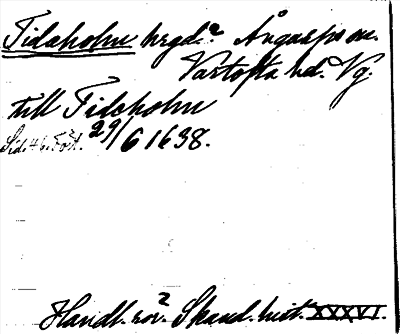 Tidaholm hrgd? Ångarps sn.
Vartofta hd. Vg.
till Tideholm
Sid. 46. 29/6 1638.
Handl. rör. Skand. hist. XXXVI.